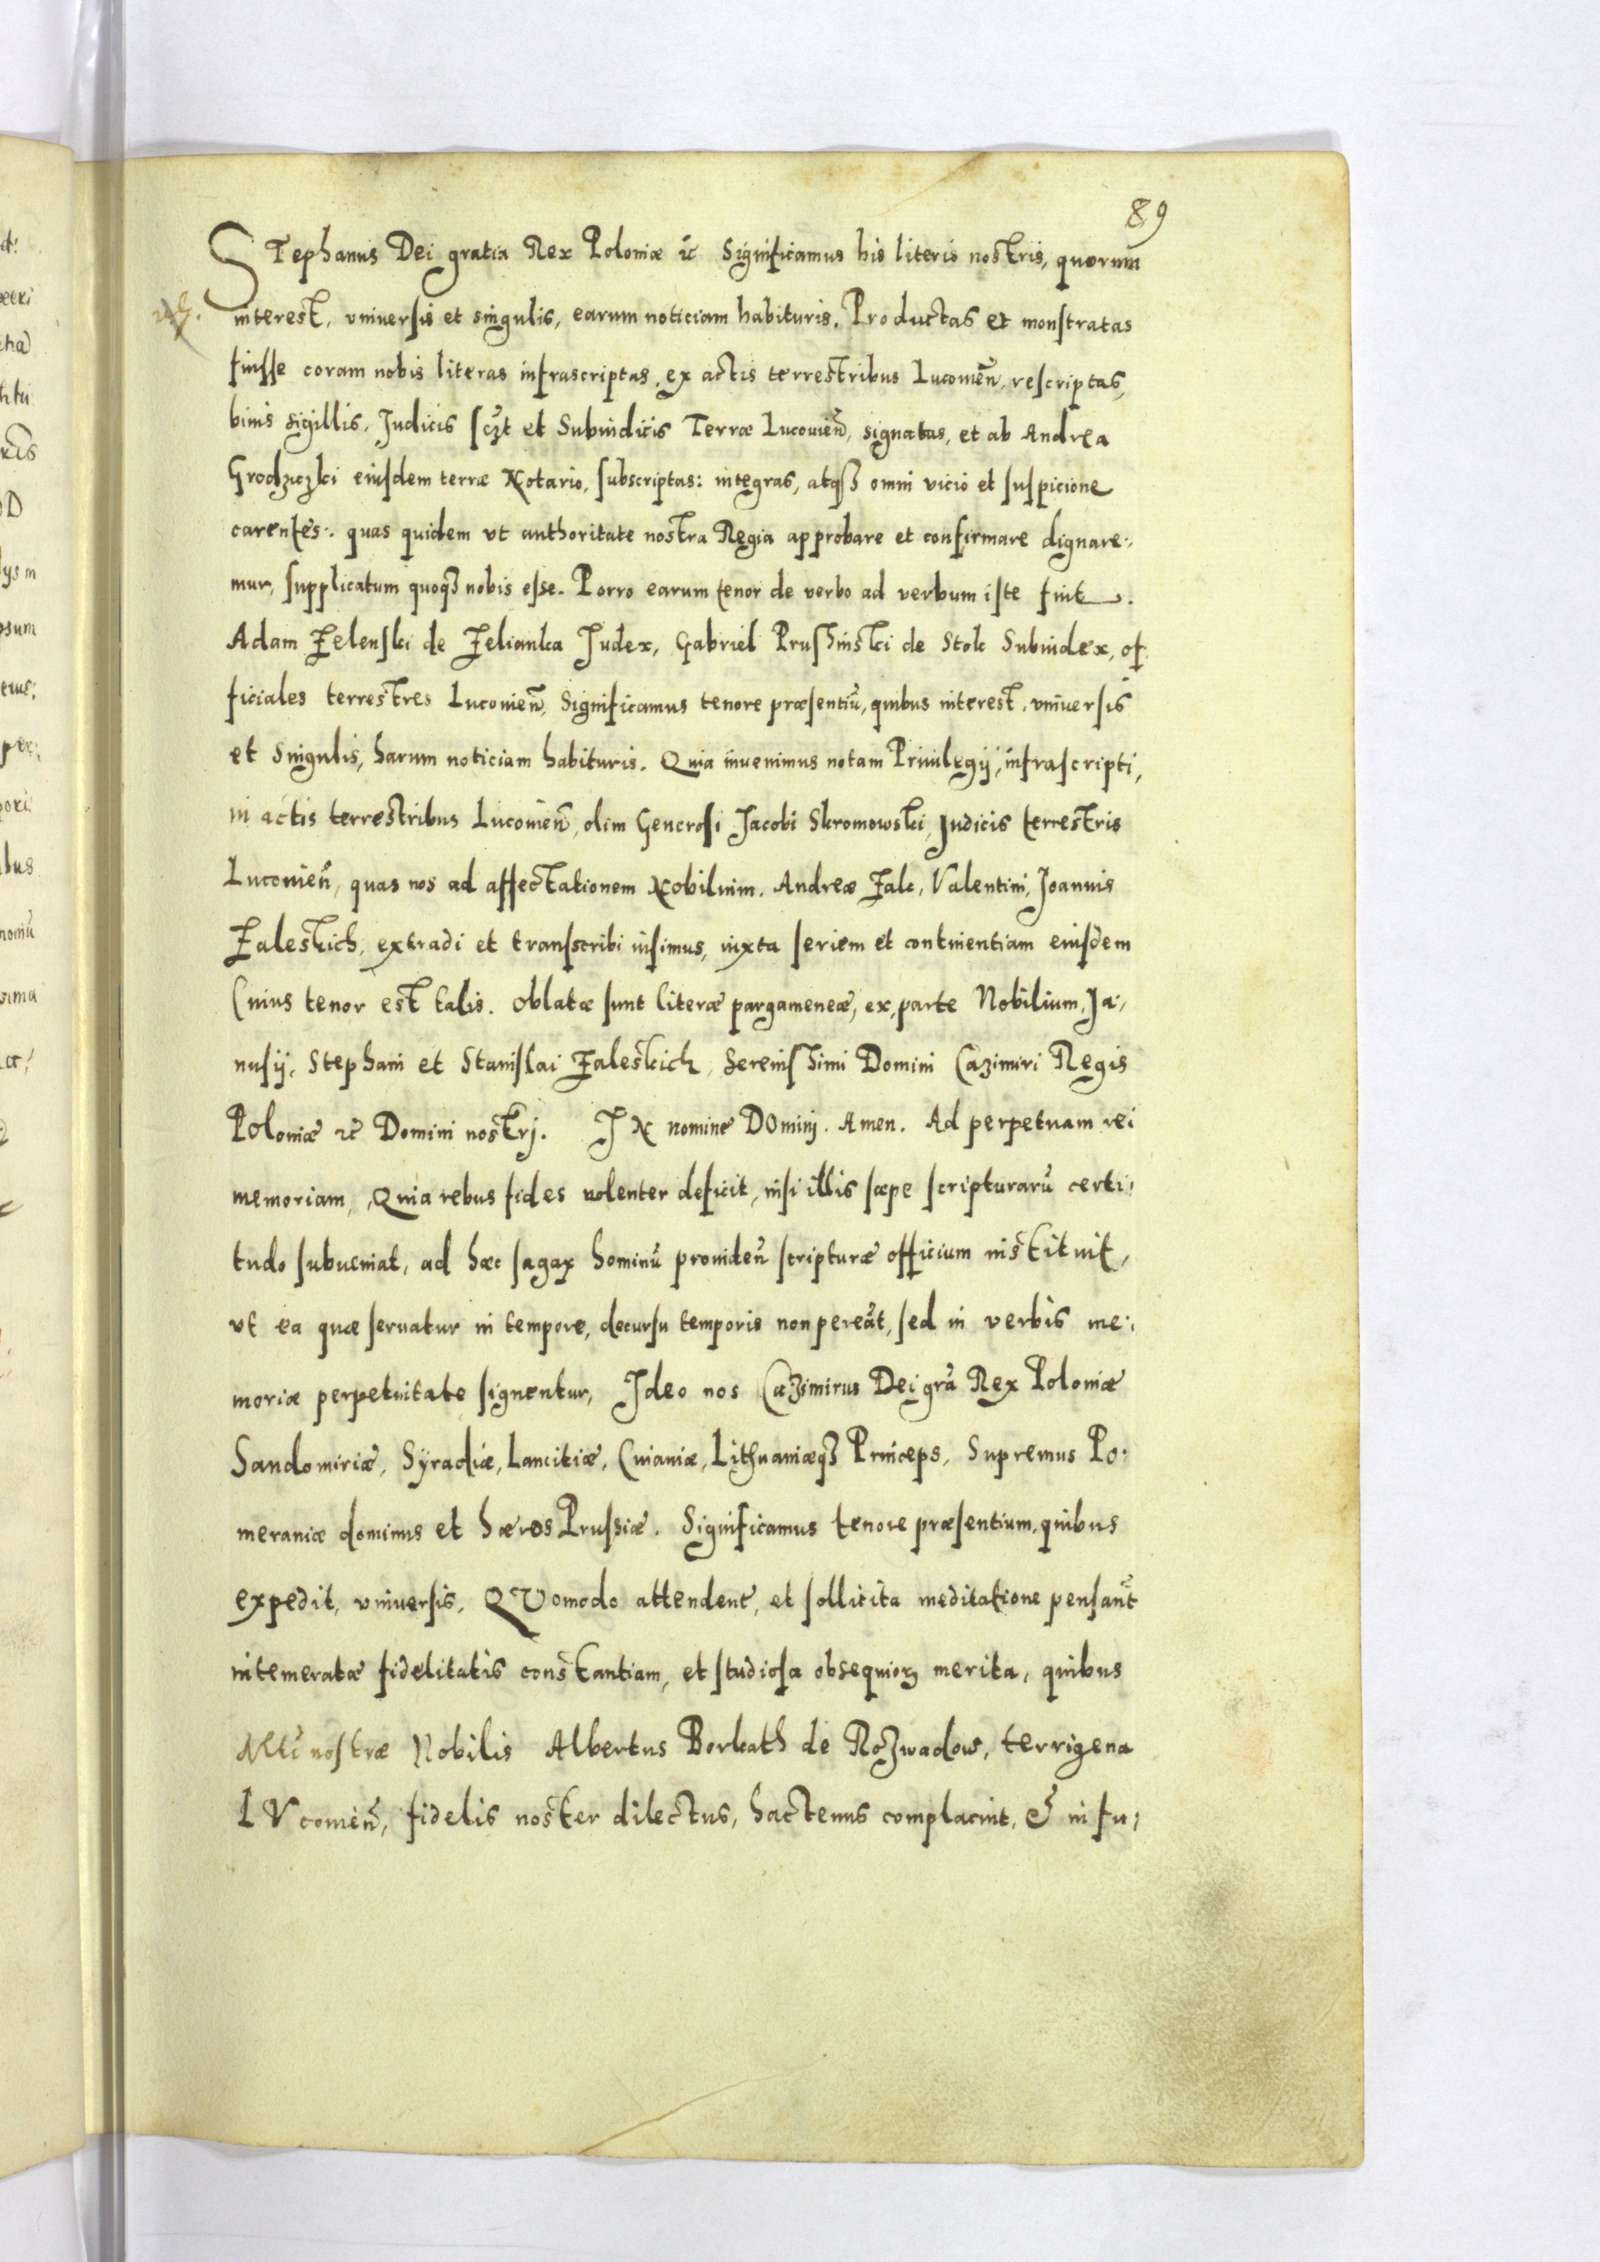 89
STephanus Dei gratia Rex Poloniæ ꝛc Significamus his literis nostris, quorum
interest, vniuersis et singulis, earum noticiam habituris. Productas et monstratas
fuisse coram nobis literas infrascriptas, ex actis terrestribus Lucouieñ, rescriptas,
binis sigillis, Judicis sczt et Subiudicis Terræ Lucouieñ, signatas, et ab Andrea
Grodziczki eiusdem terræ Notario, subscriptas: integras, atqꝫ omni vicio et suspicione
carentes: quas quidem vt authoritate nostra Regia approbare et confirmare dignare:
mur, supplicatum quoqꝫ nobis esse. Porro earum tenor de verbo ad verbum iste fuit.
Adam Zelenski de Zelianka Judex, Gabriel Prusinski de Stok Subiudex, of
ficiales terrestres Lucouieñ, Significamus tenore præsentiũ, quibus interest, vniuersis
et Singulis, harum noticiam habituris. Quia inuenimus notam Priuilegij, infrascripti,
in actis terrestribus Lucouieñ, olim Generosi Jacobi Skromowski, Judicis terrestris
Lucouieñ, quas nos ad affectationem Nobilium. Andreæ Zalc, Valentini, Joannis
Zaleskich, extradi et transscribi iusimus, iuxta seriem et continentiam eiusdem
Cuius tenor est talis. Oblatæ sunt literæ pargameneæ, ex parte Nobilium, Ja:
nusij, Stephani et Stanislai Zaleskich, Serenissimi Domini Cazimiri Regis
Poloniæ ꝛc Domini nostrj. JN nomine DOminj. Amen. Ad perpetuam rei
memoriam, Quia rebus fides uolenter deficit, nisi illis sæpe scripturarũ certi:
tudo subueniat, ad hæc sagax hominũ prouideñ scripturæ officium instituit,
vt ea quæ seruatur in tempore, decursu temporis non pereãt, sed in verbis me:
moriæ perpetuitate signentur, Jdeo nos Cazimirus Dei grã Rex Poloniæ
Sandomiriæ, Syradiæ, Lancitiæ, Cuiauiæ, Lithuaniæqꝫ Princeps, Supremus Po:
meraniæ dominus et hæres Prussiæ. Significamus tenore præsentium, quibus
expedit, vniuersis, QVomodo attendent, et sollicita meditatione pensañt
intemeratæ fidelitatis constantiam, et studiosa obsequioꝝ merita, quibus
Mtĩ nostræ Nobilis Albertus Borkath de Rozwadow, terrigena
LVcouieñ, fidelis noster dilectus, hactenus complacuit, & in fu: